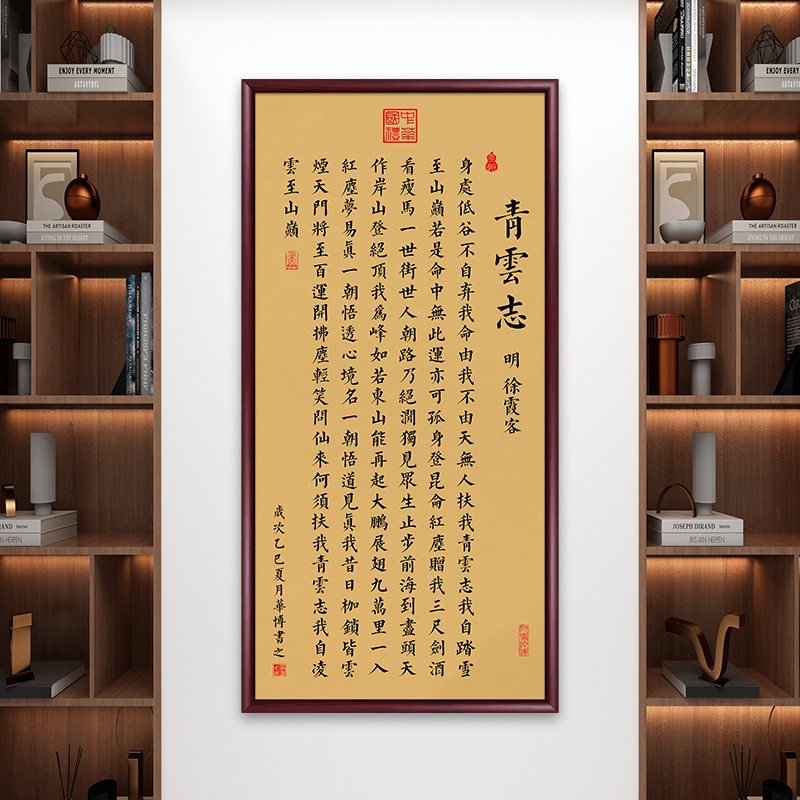 中華國禮
青雲志
明 徐霞客
身處低谷不自弃我命由我不由天無人扶我青雲志我自踏雪
至山巔若是命中無此運亦可孤身登昆侖紅塵贈我三尺劍酒
看瘦馬一世街世人朝路乃絕澗獨見眾生止步前海到盡頭天
作岸山登絕頂我爲峰如若東山能再起大鵬展翅九萬里一入
紅塵夢易眞一朝悟透心境名一朝悟道見眞我昔日枷鎖皆雲
煙天門將至百運開拂塵輕笑問仙來何須扶我青雲志我自凌
雲至山巔
歲次乙巳夏月華博書之
ENJOY EVERY MOMENT
THE ARTISAN ROASTER
LIVING IN THE DESERT
ANNA KARENINA
DIRAND Interior
IRIS VAN HERPEN
ENJOY EVERY MOMENT
THE ARTISAN ROASTER
LIVING IN THE DESERT
JOSEPH DIRAND Interior
IRIS VAN HERPEN